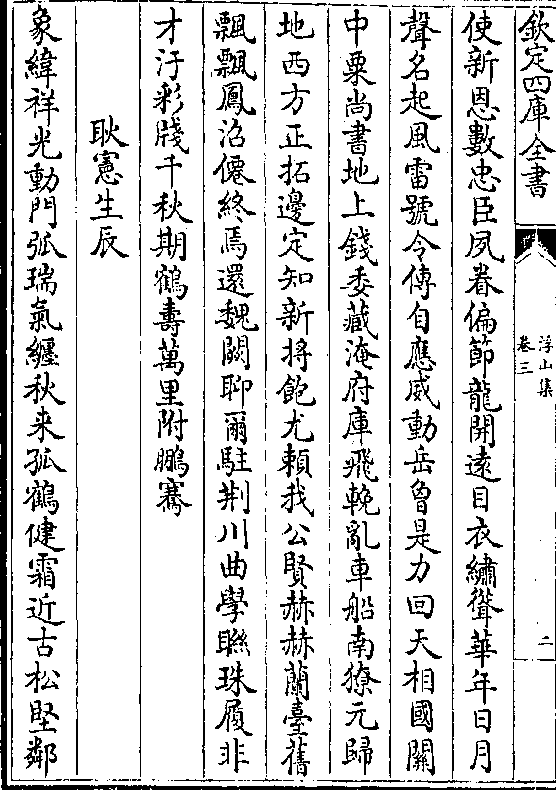 欽定四庫全書
浮山集
卷三
二
使新恩數忠臣夙眷偏節龍開遠目衣繡聳華年日月
聲名起風雷號令傳自應威動岳曾是力回天相國關
中粟尚書地上錢委藏淹府庫飛輓亂車船南獠元歸
地西方正拓邊定知新將飽尤頼我公賢赫赫蘭臺舊
飄飄鳳沼僊終焉還魏闕聊爾駐荆川曲學聮珠履非
才汙彩牋千秋期鶴壽萬里附鵬騫
耿憲生辰
象緯祥光動門弧瑞氣纒秋来孤鶴健霜近古松堅鄰